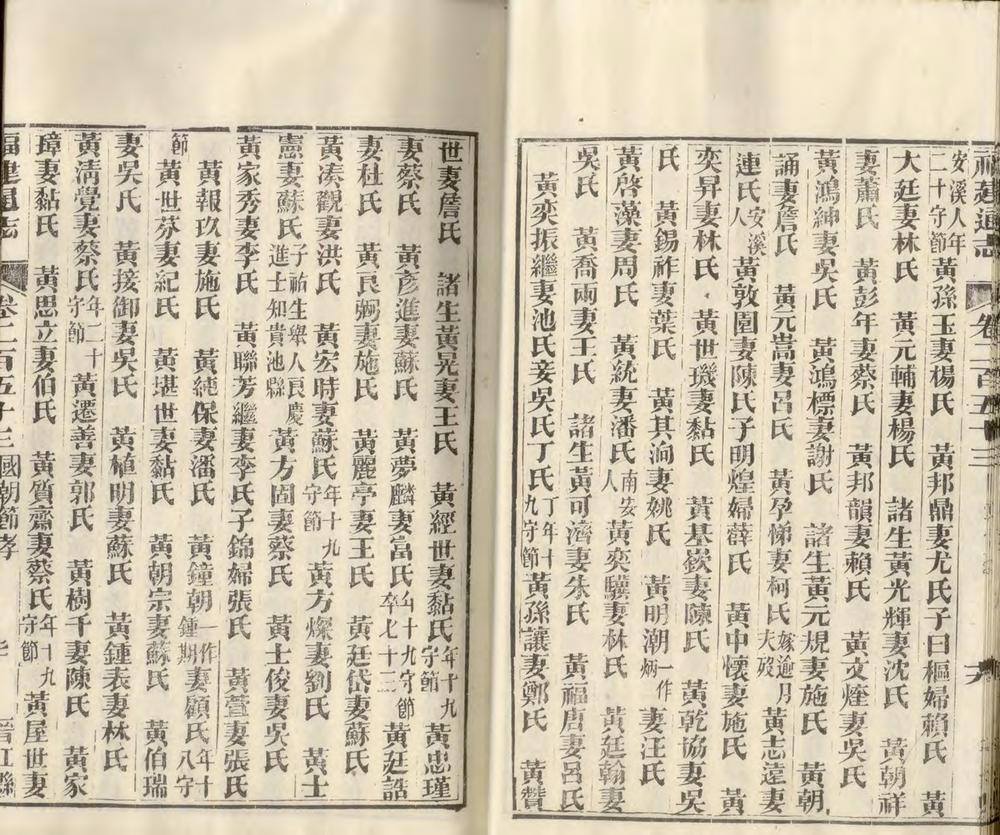 福建通志 卷二百五十三
安溪人年二十守節黃孫玉妻楊氏 黃邦鼎妻尤氏子曰樞婦賴氏 黃
大廷妻林氏 黃元輔妻楊氏 諸生黃光輝妻沈氏 黃朝祥
妻蕭氏 黃彭年妻蔡氏 黃邦韻妻賴氏 黃文煃妻吳氏
黃鴻紳妻吳氏 黃鴻標妻謝氏 諸生黃元規妻施氏 黃朝
誦妻詹氏 黃元嵩妻呂氏 黃孕悌妻柯氏嫁逾月夫歿黃志遠妻
連氏安溪人黃敦圍妻陳氏子明煌婦薛氏 黃中懷妻施氏 黃
奕昇妻林氏 黃世璣妻黏氏 黃基嶔妻陳氏 黃乾協妻吳
氏 黃錫祚妻葉氏 黃其洵妻姚氏 黃明潮一作炳妻汪氏
黃啓藻妻周氏 黃統妻潘氏南安人黃奕驥妻林氏 黃廷翰妻
吳氏 黃喬雨妻王氏 諸生黃可濟妻朱氏 黃福唐妻呂氏
黃奕振繼妻池氏妾吳氏丁氏丁年十九守節黃孫讓妻鄭氏 黃贊
世妻詹氏 諸生黃晃妻王氏 黃經世妻黏氏年十九守節黃忠瑾
妻蔡氏 黃彥進妻蘇氏 黃夢麟妻富氏年十九守節卒七十三黃廷誥
妻杜氏 黃良弼妻施氏 黃麗亭妻王氏 黃廷岱妻蘇氏
黃湊觀妻洪氏 黃宏時妻蘇氏年十九守節黃方燦妻劉氏 黃士
憲妻蘇氏子祐生舉人良慶進士知貴池縣黃方固妻蔡氏 黃士俊妻吳氏
黃家秀妻李氏 黃聯芳繼妻李氏子錦婦張氏 黃萱妻張氏
黃報玖妻施氏 黃純保妻潘氏 黃鐘朝一作鍾期妻顧氏年十八守
節 黃世芬妻紀氏 黃堪世妻黏氏 黃朝宗妻蘇氏 黃伯瑞
妻吳氏 黃接御妻吳氏 黃植明妻蘇氏 黃鍾表妻林氏
黃清覺妻蔡氏年二十守節黃遷善妻郭氏 黃樹千妻陳氏 黃家
璋妻黏氏 黃思立妻伯氏 黃質齋妻蔡氏年十九守節黃屋世妻
福建通志 卷二百五十三 國朝節孝 晉江縣